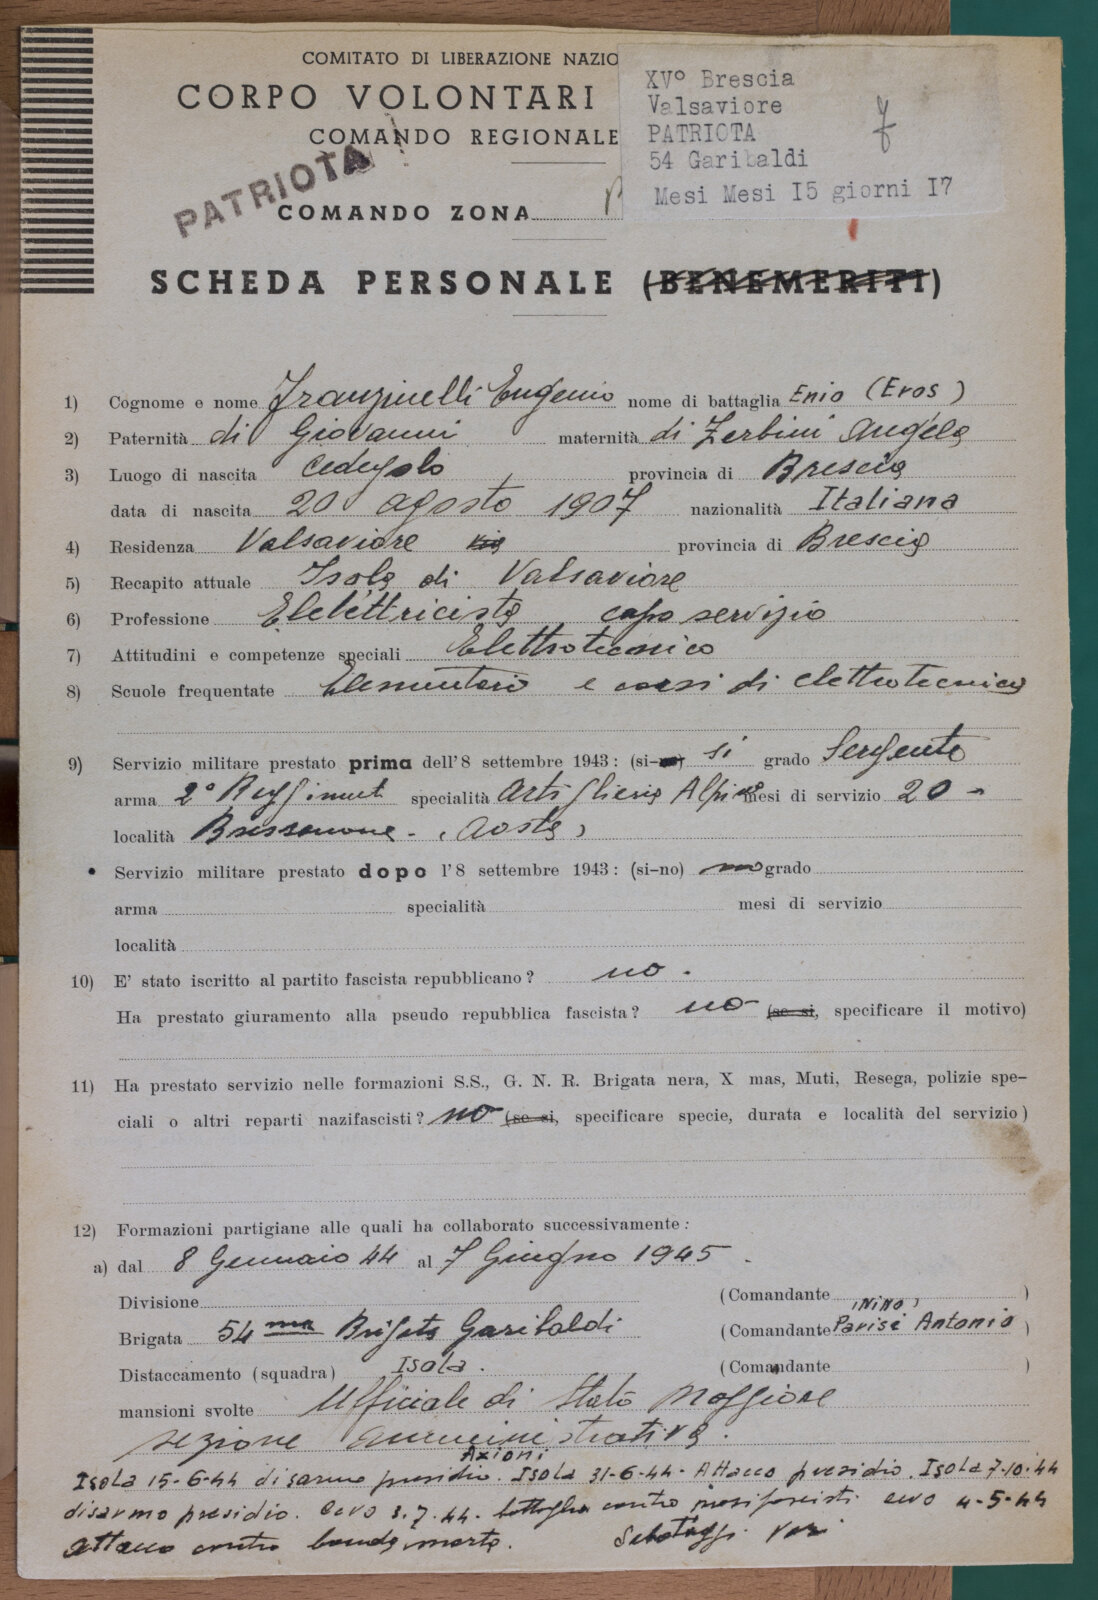 COMITATO DI LIBERAZIONE NAZIO
CORPO VOLONTARI
COMANDO REGIONALE
XV° Brescia
Valsaviore
PATRIOTA
54 Garibaldi
Mesi Mesi I5 giorni I7
PATRIOTA
COMANDO ZONA
SCHEDA PERSONALE (BENEMERITI)
1) Cognome e nome Franzinelli Eugenio nome di battaglia Enio (Eros)
2) Paternità di Giovanni maternità di Zerbini Angela
3) Luogo di nascita Cedegolo provincia di Brescia
data di nascita 20 agosto 1907 nazionalità Italiana
4) Residenza Valsaviore provincia di Brescia
5) Recapito attuale Isola di Valsaviore
6) Professione Elettricista capo servizio
7) Attitudini e competenze speciali Elettrotecnico
8) Scuole frequentate Elementari e corsi di elettrotecnica
9) Servizio militare prestato prima dell'8 settembre 1943: (si-no) si grado Sergente
arma 2° Reggiment specialità Artiglieria Alpina mesi di servizio 20 -
località Bressanone - (Aosta)
Servizio militare prestato dopo l'8 settembre 1943: (si-no) no grado
arma specialità mesi di servizio
località
10) E' stato iscritto al partito fascista repubblicano? no.
Ha prestato giuramento alla pseudo repubblica fascista? no (se si, specificare il motivo)
11) Ha prestato servizio nelle formazioni S.S., G. N. R. Brigata nera, X mas, Muti, Resega, polizie spe-
ciali o altri reparti nazifascisti? no (se si, specificare specie, durata e località del servizio)
12) Formazioni partigiane alle quali ha collaborato successivamente:
a) dal 8 Gennaio 44 al 7 Giugno 1945.
Divisione (Comandante )
(Nino)
Brigata 54 ma Brigata Garibaldi (Comandante Parisi Antonio )
Distaccamento (squadra) Isola. (Comandante )
mansioni svolte Ufficiale di Stato Maggiore
sezione amministrativa.
Azioni
Isola 15-6-44 disarmo presidio. Isola 31-6-44- Attacco presidio. Isola 7-10-44
disarmo presidio. Cevo 3.7.44. battaglia contro nazifascisti. Cevo 4-5-44
attacco contro banda morta. Sabotaggi vari